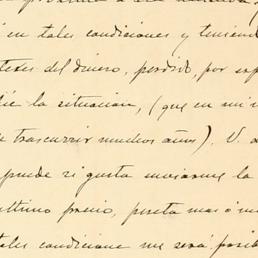 en tales condiciones y teniend
del dinero, perdido, por sup
la situacion, (que en mi v
trascurrir muchos años). V. a
puede si gusta enviarme la
ultimo precio, peseta mas ó me
tales condiciones me será posib